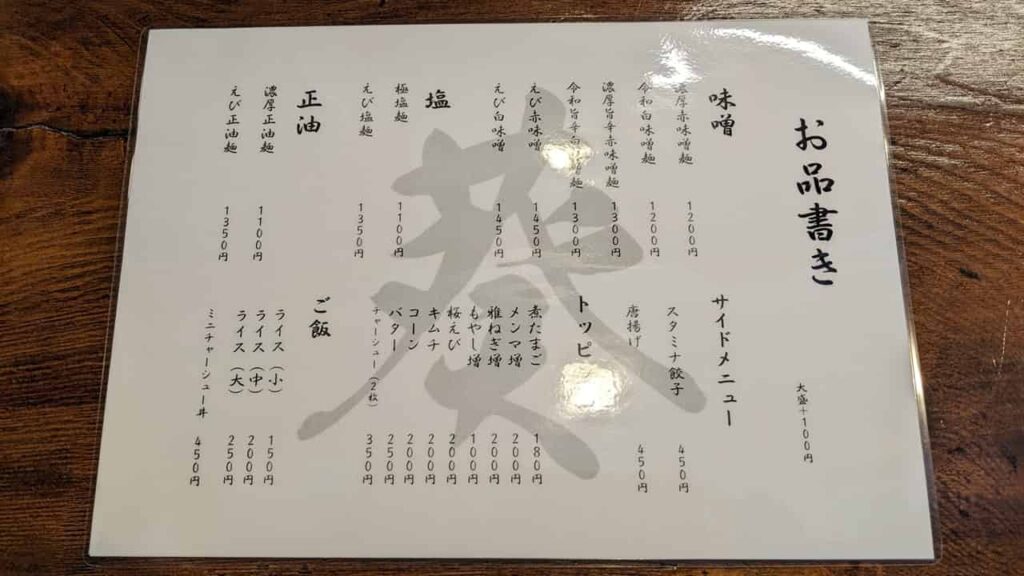 お品書き
大盛+100円
味噌
濃厚赤味噌麺 1200円
令和白味噌麺 1200円
濃厚旨辛赤味噌麺 1300円
令和旨辛白味噌麺 1300円
えび赤味噌 1450円
えび白味噌 1450円
塩
極塩麺 1100円
えび塩麺 1350円
正油
濃厚正油麺 1100円
えび正油麺 1350円
サイドメニュー
スタミナ餃子 450円
唐揚げ 450円
トッピング
煮たまご 180円
メンマ増 200円
雅ねぎ増 200円
もやし増 100円
桜えび 200円
キムチ 200円
コーン 200円
バター 250円
チャーシュー(2枚) 350円
ご飯
ライス(小) 150円
ライス(中) 200円
ライス(大) 250円
ミニチャーシュー丼 450円
葵